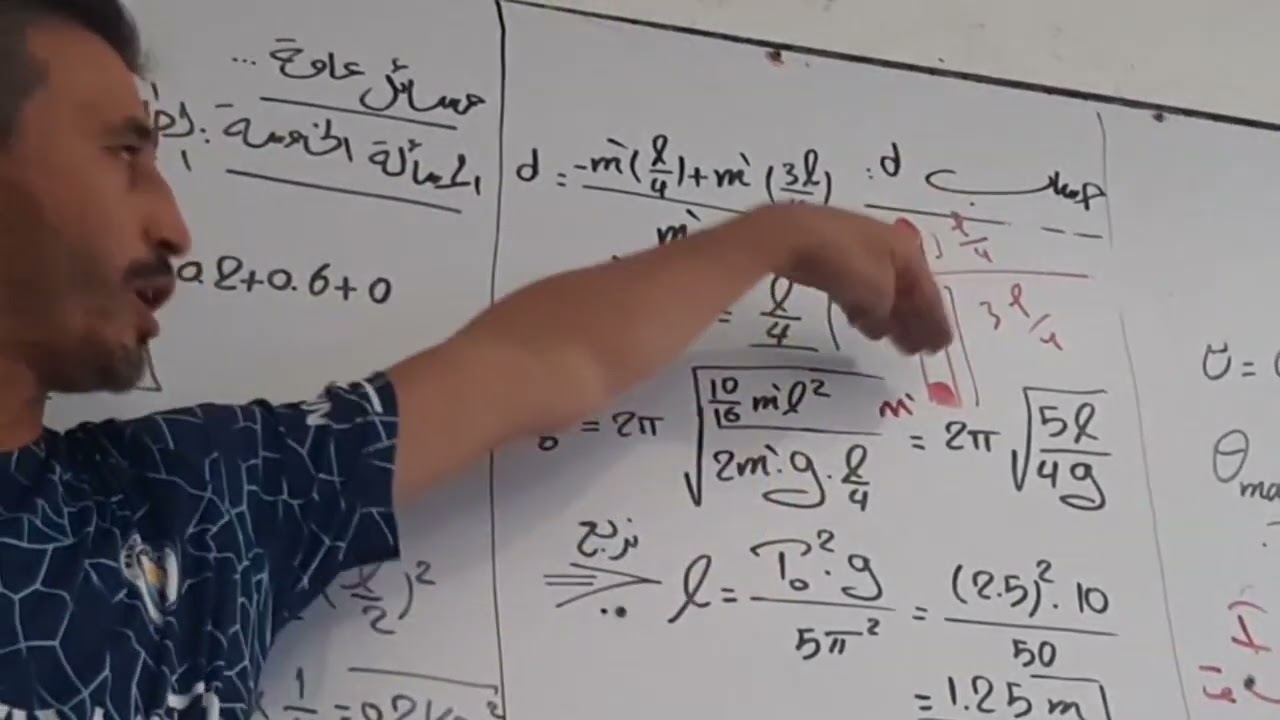 مسائل عامة ...
المسألة الخامسة:
0.2+0.6+0
حساب d:
d = -m'(l/4)+m'(3l/
m'
= l/4
l/4
3l/4
m'
= 2π √(10/16 m'l² / 2m'.g.l/4) = 2π √(5l/4g)
نربع
⇒ l = T₀².g / 5π² = (2.5)².10 / 50
= 1.25 m
(l/2)²
1
θma